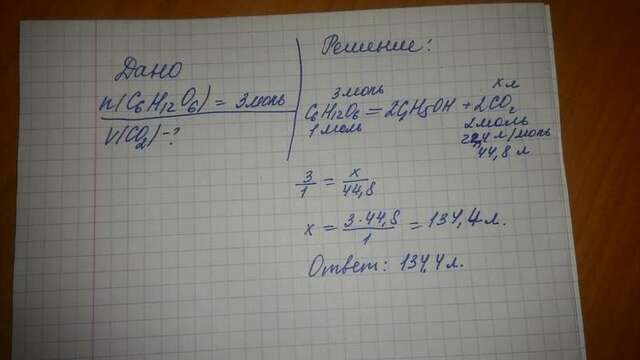 Дано
n(C6H12O6) = 3моль
V(CO2)-?
Решение:
3моль x л
C6H12O6 = 2C2H5OH + 2CO2
1моль 2моль
22,4 л/моль
44,8 л
3/1 = x/44,8
x = 3·44,8/1 = 134,4л.
Ответ: 134,4л.